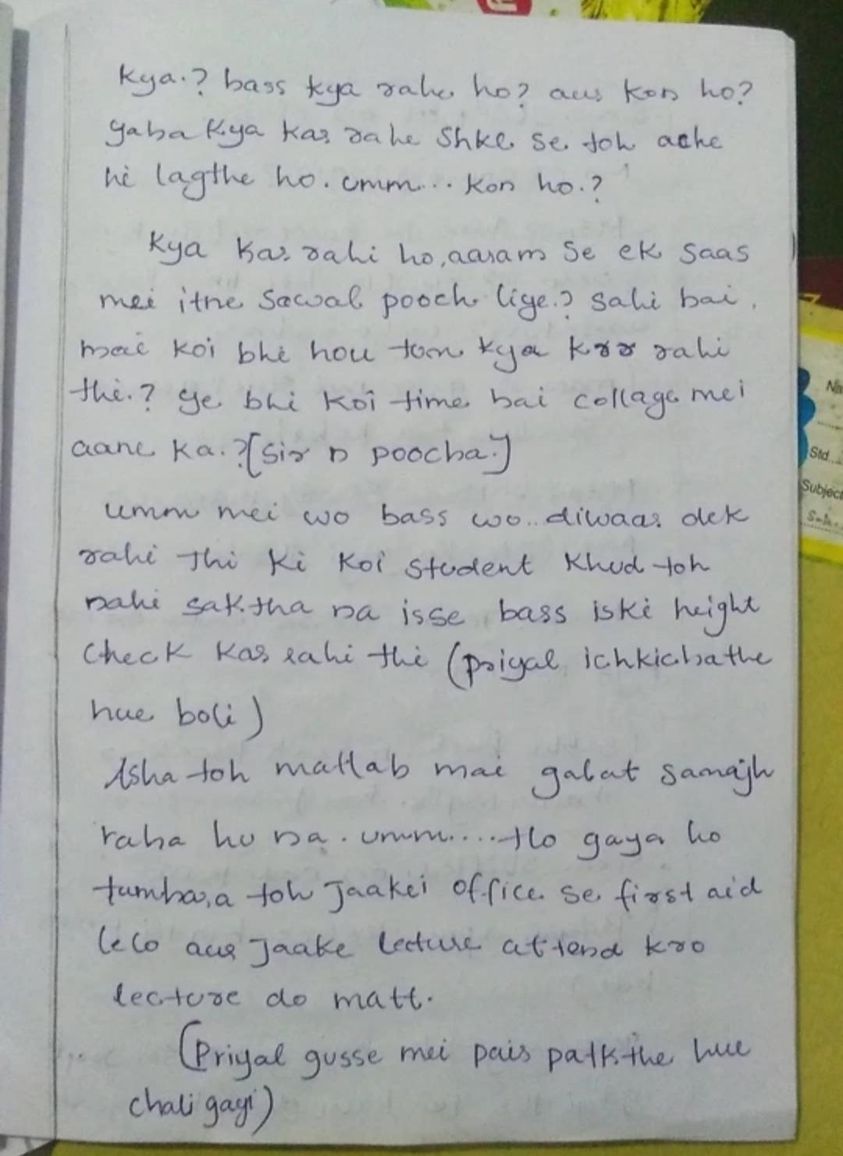 Kya.? bass kya rahe ho? aur kon ho?
yaha kya kar rahe Shkl se toh ache
hi lagthe ho. umm... kon ho.?
Kya kar rahi ho, aaram se ek saas
mei itne sawal pooch liye.? sahi hai.
mai koi bhi hou tom kya krr rahi
thi.? ye bhi koi time hai collage mei
aane ka.? [Sir n poocha.]
umm mei wo bass wo.. diwaar dek
rahi thi ki koi student khud toh
nahi saktha na isse bass iski height
check kar rahi thi (priyal ichkichathe
hue boli)
Asha toh matlab mai galat samajh
raha hu na. umm.... Ho gaya ho
tumhara toh Jaakei office se first aid
lelo aur Jaake lecture attend kro
lecture do matt.
(Priyal gusse mei pair patkthe hue
chali gayi)
Na
Std...
Subject